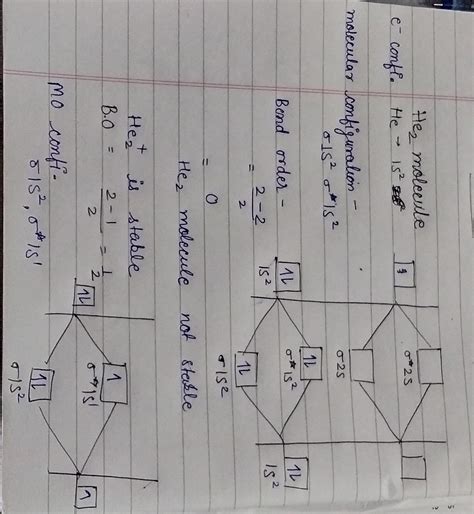 He₂ molecule
e⁻ confi. He → 1s²
molecular configuration –
σ1s² σ*1s²
Bond order –
= 2-2/2
= 0
He₂ molecule not stable
He₂⁺ is stable
B.O = 2-1/2 = 1/2
MO confi-
σ1s², σ*1s¹
σ*2s
σ2s
1s²
1↓
σ*1s²
1↓
σ1s²
1↓
1s²
1↓
1↓
σ*1s¹
1
σ1s²
1↓
1